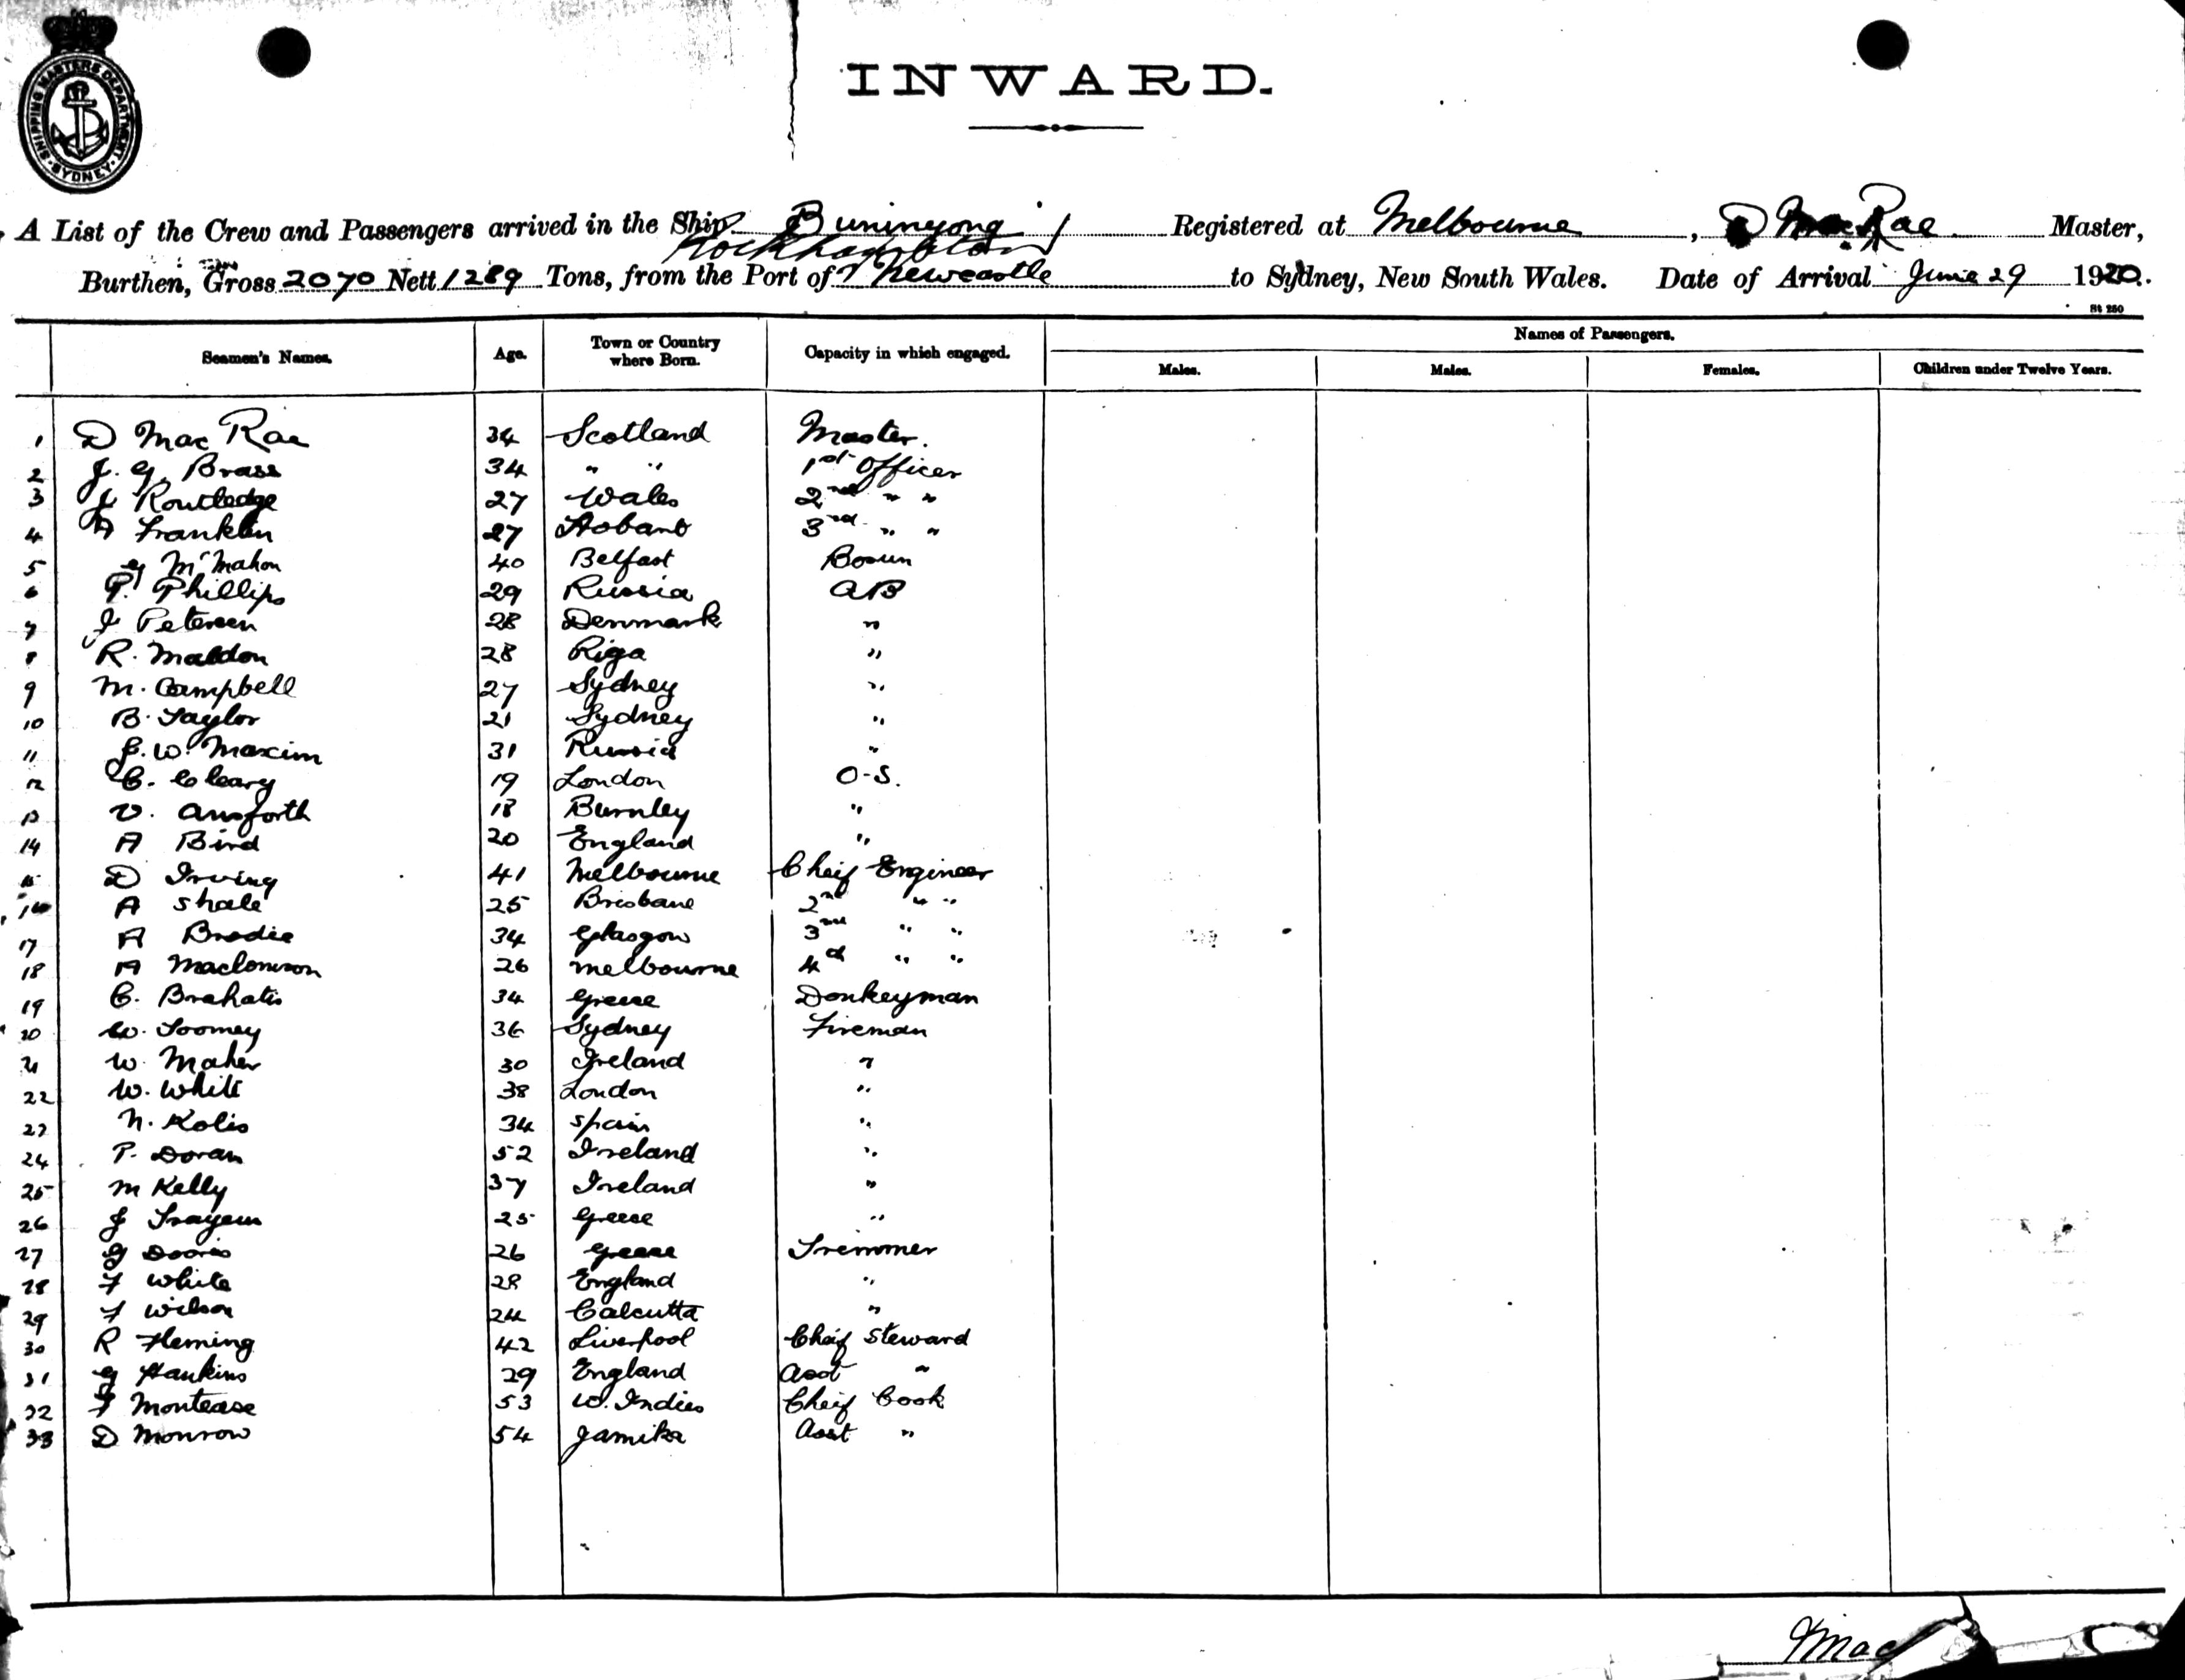 SHIPPING MASTERS DEPARTMENT. SYDNEY
INWARD.
A List of the Crew and Passengers arrived in the Ship Buninyong Registered at Melbourne, D MacRae Master,
Rockhampton
Burthen, Gross 2070 Nett 1289 Tons, from the Port of Newcastle to Sydney, New South Wales. Date of Arrival June 29 1920.
St 250
Seamen's Names. Age. Town or Country where Born. Capacity in which engaged. Names of Passengers.
Males. Males. Females. Children under Twelve Years.
1 D Mac Rae 34 Scotland Master.
2 J. G. Brass 34 " " 1st Officer
3 J Routledge 27 Wales 2nd " "
4 A Franklin 27 Hobart 3rd " "
5 G McMahon 40 Belfast Bosun
6 P. Phillips 29 Russia AB
7 J Petersen 28 Denmark "
8 R. Maldon 28 Riga "
9 M. Campbell 27 Sydney "
10 B. Taylor 21 Sydney "
11 J. W. Maxim 31 Russia "
12 C. Cleary 19 London O-S.
13 V. Ansforth 18 Burnley "
14 A Bird 20 England "
15 D Irving 41 Melbourne Cheif Engineer
16 A Shale 25 Brisbane 2nd " "
17 A Brodie 34 Glasgow 3rd " "
18 A 26 Melbourne 4th " "
19 C. Brahatis 34 Greese Donkeyman
20 W. Toomey 36 Sydney Fireman
21 W. Maher 30 Ireland "
22 W. White 38 London "
23 N. Kolis 34 Spain "
24 P. Doran 52 Ireland "
25 M Kelly 37 Ireland "
26 J 25 Greece "
27 G Dooris 26 Greese Tremmer
28 F White 28 England "
29 F Wilson 24 Calcutta "
30 R Fleming 42 Liverpool Cheif Steward
31 G Hankins 29 England Asst "
32 F Montease 53 W. Indies Cheif Cook
33 D Monrow 54 Jamika Asst "